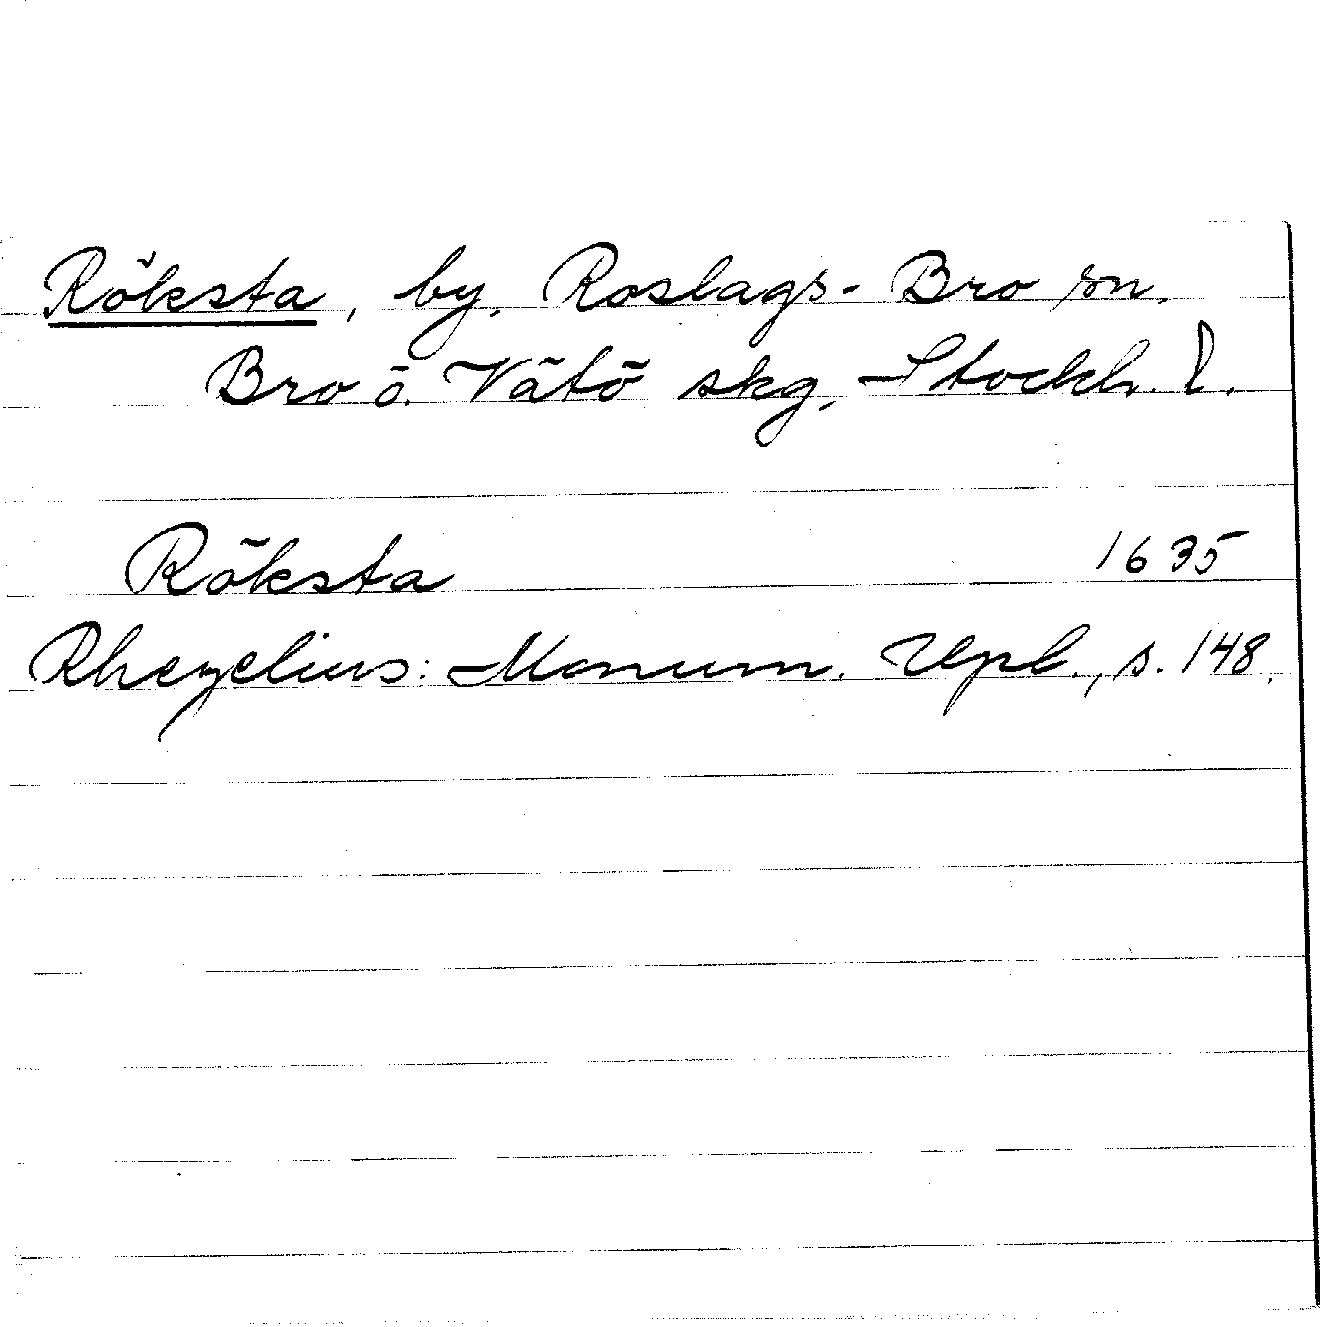 Röksta, by, Roslags-Bro sn.
Bro o. Vätö skg, Stockh. l.
Röksta 1635
Rhezelius: Monum. Upl., s. 148.